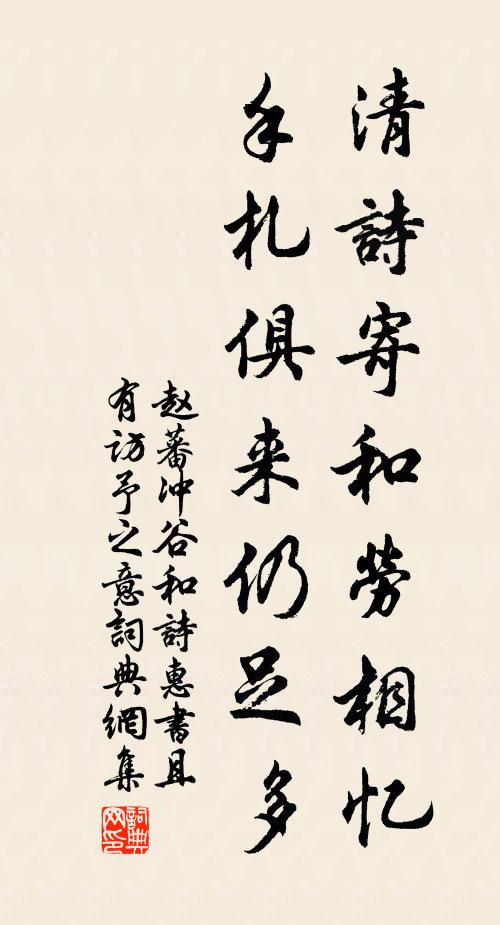 清詩寄和勞相忆
手札俱来仍足多
赵蕃沖谷和詩惠書且
有访予之意詞典網集
詞典网印